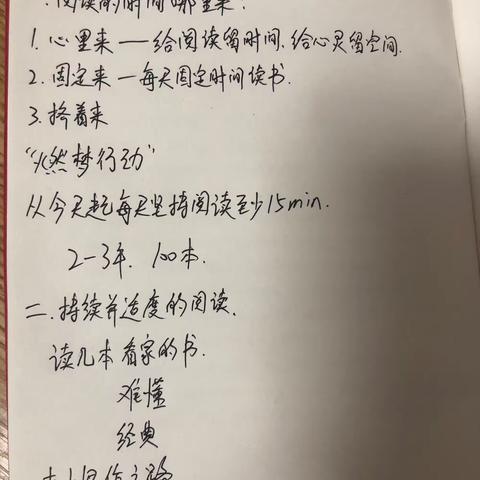 阅读的时间哪里来.
1.心里来——给阅读留时间.给心灵留空间.
2.固定来—每天固定时间读书.
3.挤着来
“燃梦行动”
从今天起每天坚持阅读至少15min.
2-3年. 100本.
二.持续并适度的阅读.
读几本看家的书.
难懂
经典